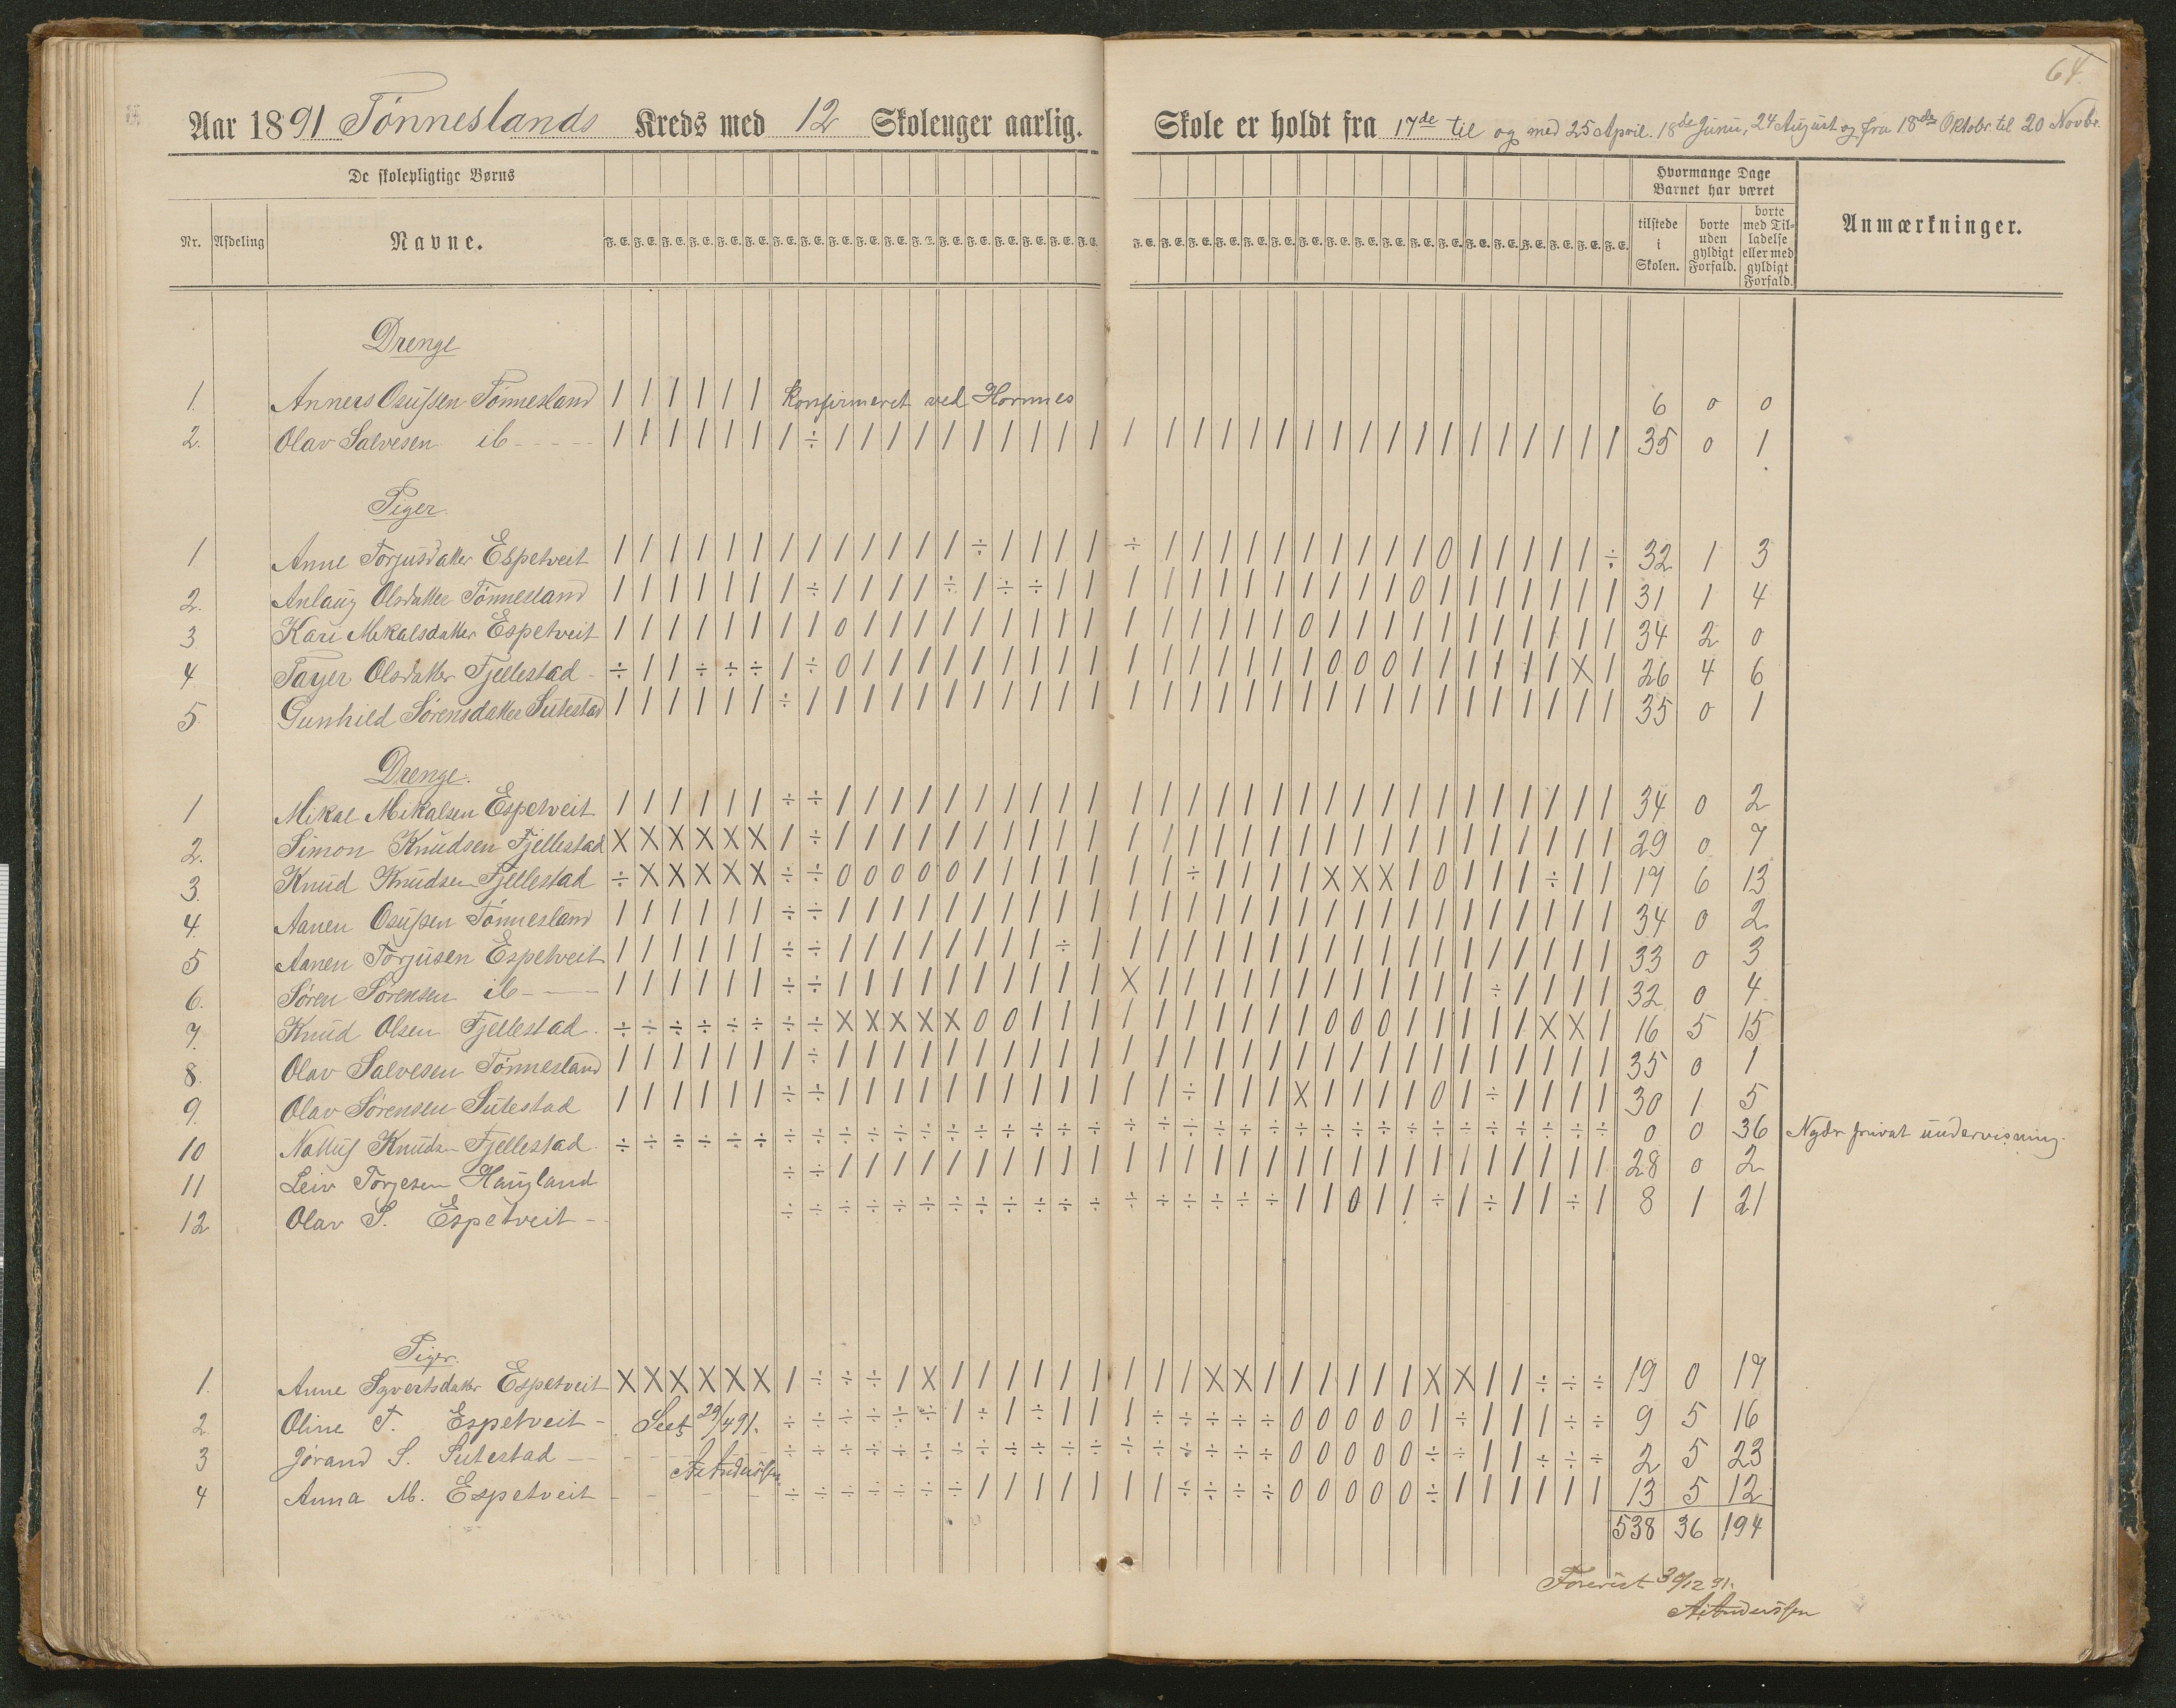 64.
Aar 1891 Tønneslands Kreds med 12 Skoleuger aarlig. Skole er holdt fra 17de til og med 25 April. 18de Juni, 24 August og fra 18de Oktobr. til 20 Novbr.
De skolepligtige Børns
Hvormange Dage Barnet har været
Nr. Afdeling Navne. F. E. F. E. F. E. F. E. F. E. F. E. F. E. F. E. F. E. F. E. F. E. F. E. F. E. F. E. F. E. F. E. F. E. F. E. F. E. F. E. F. E. F. E. F. E. F. E. F. E. F. E. F. E. F. E. F. E. F. E. F. E. F. E. F. E. F. E. F. E. F. E. tilstede i Skolen. borte uden gyldigt Forfald. borte med Tilladelse eller med gyldigt Forfald. Anmærkninger.
Drenge
1. Anners Osufsen Tønnesland / / / / / / Konfirmeret ved Hornnes 6 0 0
2. Olav Salvesen ib - - - / / / / / / / ÷ / / / / / / / / / / / / / / / / / / / / / / / / / / / / 35 0 1
Piger.
1 Anne Torjusdatter Espetveit / / / / / / / / / / / / / ÷ / / / / ÷ / / / / / / / / / / 0 / / / / / ÷ 32 1 3
2. Anlaug Olsdatter Tønnesland / / / / / / / ÷ / / / / ÷ / ÷ ÷ / / / / / / / / / / / / 0 / / / / / / / 31 1 4
3 Kari Mikalsdatter Espetveit / / / / / / / / 0 / / / / / / / / / / / / / / / 0 / / / / / / / / / / / 34 2 0
4 Tayer Olsdatter Fjellestad - ÷ / / ÷ ÷ ÷ / ÷ 0 / / / / / / / / / / / / / / / / 0 0 0 / / / / / / X / 26 4 6
5. Gunhild Sørensdatter Sutestad / / / / / / ÷ / / / / / / / / / / / / / / / / / / / / / / / / / / / / / 35 0 1
Drenge.
1 Mikal Mikalsen Espetveit / / / / / / ÷ ÷ / / / / / / / / / / / / / / / / / / / / / / / / / / / / 34 0 2
2. Simon Knudsen Fjellestad X X X X X X / ÷ / / / / / / / / / / / / / / / / / / / / / / / / / / / / 29 0 7
3. Knud Knudsen Fjellestad ÷ X X X X X ÷ ÷ 0 0 0 0 0 / / / / / / / ÷ / / / / X X X / 0 / / / ÷ / / 17 6 13
4. Aanen Osufsen Tønnesland / / / / / / ÷ ÷ / / / / / / / / / / / / / / / / / / / / / / / / / / / / 34 0 2
5 Aanen Torjusen Espetveit / / / / / / ÷ ÷ / / / / / / / / ÷ / / / / / / / / / / / / / / / / / / / 33 0 3
6. Søren Sørensen ib - / / / / / / ÷ ÷ / / / / / / / / / / X / / / / / / / / / / / / ÷ / / / / 32 0 4
7. Knud Olsen Fjellestad. ÷ ÷ ÷ ÷ ÷ ÷ ÷ ÷ X X X X X 0 0 / / / / / / / / / / / 0 0 0 / / / / / X X / 16 5 15
8. Olav Salvesen Tønnesland / / / / / / / ÷ / / / / / / / / / / / / / / / / / / / / / / / / / / / / 35 0 1
9. Olav Sørensen Sutestad / / / / / / ÷ ÷ / / / / / / / / / / / / ÷ / / / X / / / / 0 / ÷ / / / / 30 1 5
10 Knuds. Fjellestad. ÷ ÷ ÷ ÷ ÷ ÷ ÷ ÷ ÷ ÷ ÷ ÷ ÷ ÷ ÷ ÷ ÷ ÷ ÷ ÷ ÷ ÷ ÷ ÷ ÷ ÷ ÷ ÷ ÷ ÷ ÷ ÷ ÷ ÷ ÷ ÷ 0 0 36 Nyder privat undervisning.
11 Leiv Torjesen Haugland ÷ ÷ / / / / / / / / / / / / / / / / / / / / / / / / / / / / 28 0 2
12 Olav S. Espetveit - ÷ ÷ ÷ ÷ ÷ ÷ ÷ ÷ ÷ ÷ ÷ ÷ ÷ ÷ ÷ ÷ ÷ ÷ / / 0 / / ÷ / ÷ / / ÷ / 8 1 21
Piger.
1. Anne Syvertsdatter Espetveit X X X X X X / ÷ ÷ ÷ / X / / / / / / / / / X X / / / / / / X X / / ÷ ÷ ÷ 19 0 17
2. Oline T. Espetveit - Seet 29/4 91. ÷ ÷ ÷ ÷ ÷ ÷ / ÷ / ÷ / / / ÷ ÷ ÷ ÷ ÷ 0 0 0 0 0 / ÷ / / / ÷ ÷ 9 5 16
3 Jørand S. Sutestad - AAnderssen ÷ ÷ ÷ ÷ ÷ ÷ ÷ ÷ ÷ ÷ ÷ ÷ ÷ ÷ ÷ ÷ ÷ ÷ 0 0 0 0 0 ÷ ÷ / / ÷ ÷ ÷ 2 5 23
4 Anna M. Espetveit - ÷ ÷ ÷ ÷ ÷ ÷ ÷ / / / / / / / ÷ ÷ ÷ ÷ 0 0 0 0 0 ÷ / / / / / / 13 5 12
538 36 194
Forevist 30/12 91.
AAnderssen